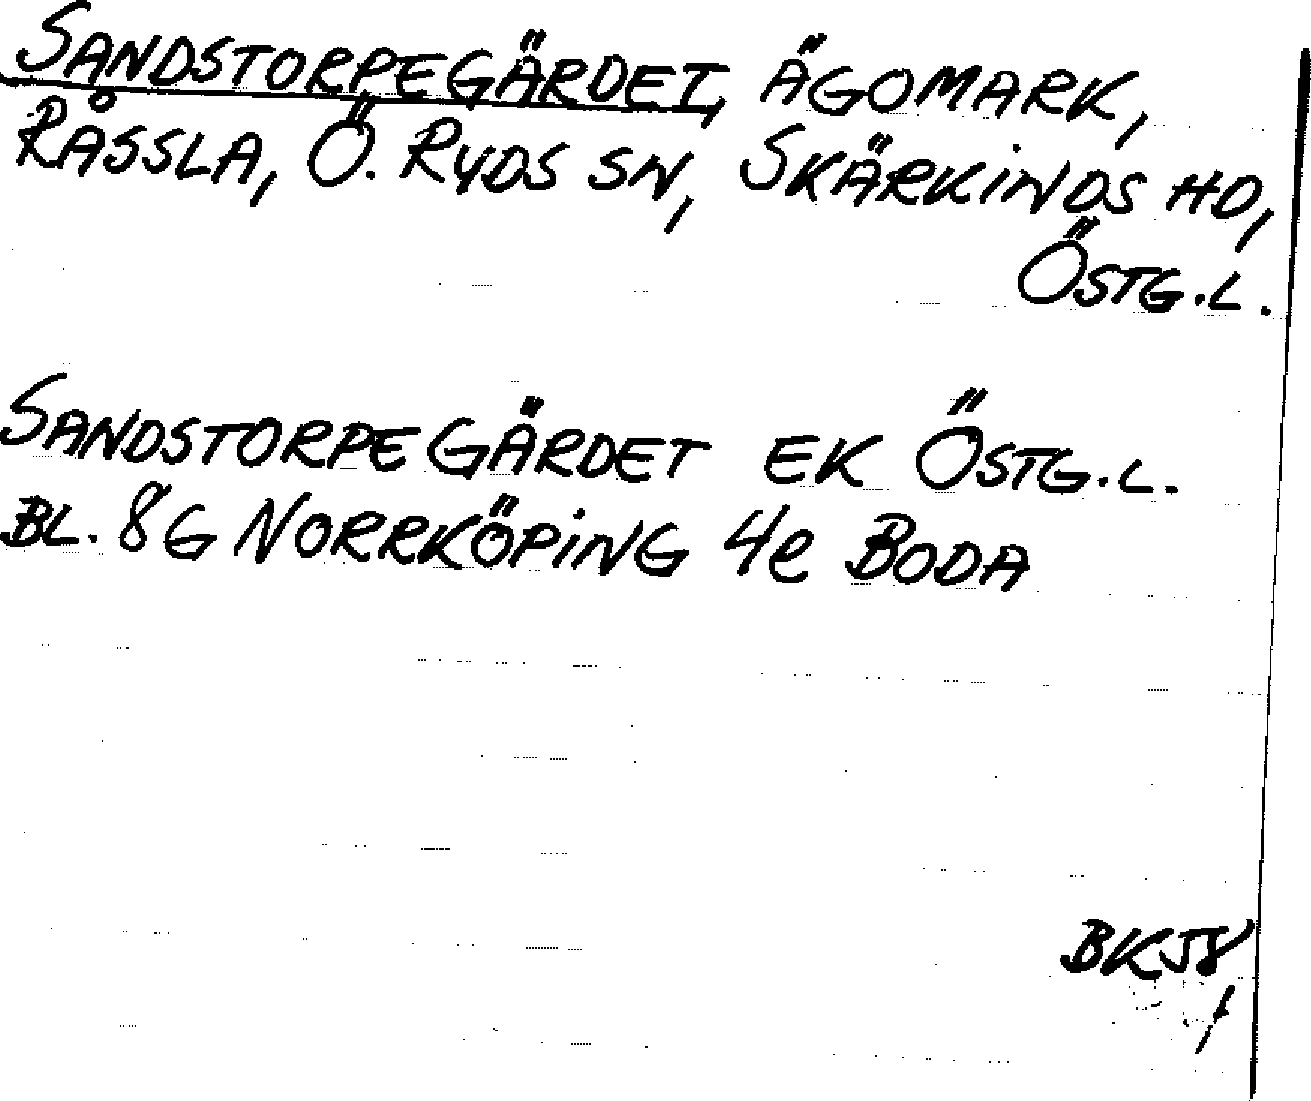 SANDSTORPEGÄRDET, ÄGOMARK,
RÅSSLA, Ö. RYDS SN, SKÄRKINDS HD,
ÖSTG.L.
SANDSTORPEGÄRDET EK ÖSTG.L.
BL. 8G NORRKÖPING 4e BODA